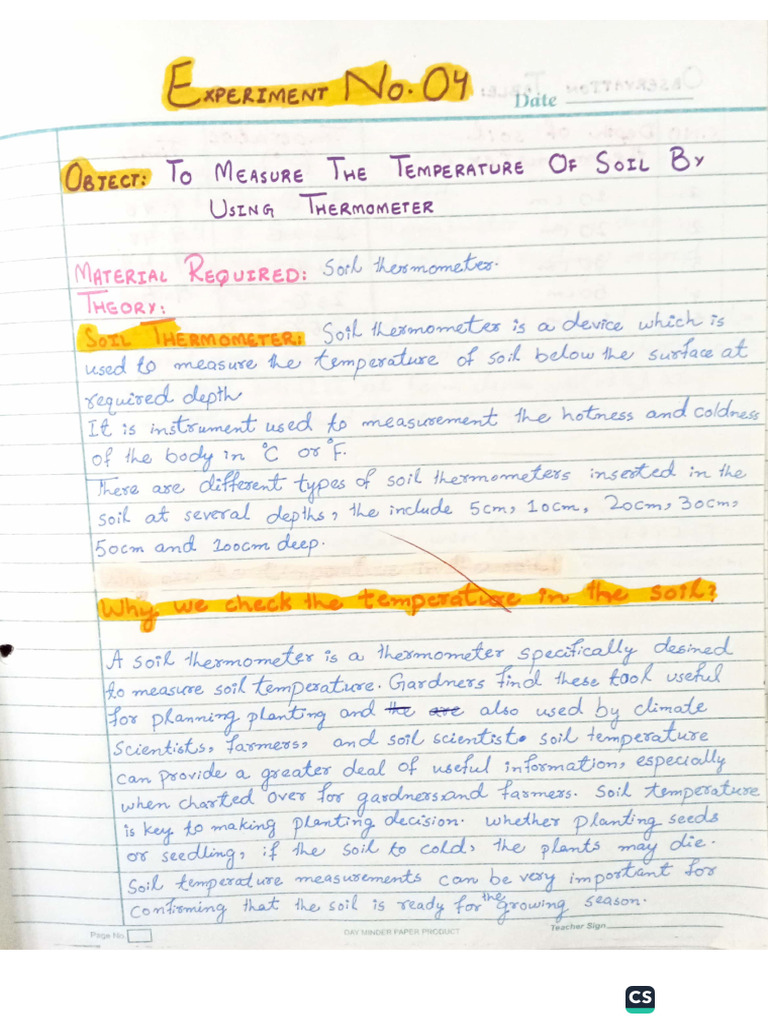 EXPERIMENT No. 04
Date
OBJECT: TO MEASURE THE TEMPERATURE OF SOIL BY
USING THERMOMETER
MATERIAL REQUIRED: Soil thermometer.
THEORY:
SOIL THERMOMETER: Soil thermometer is a device which is
used to measure the temperature of soil below the surface at
required depth
It is instrument used to measurement the hotness and coldness
of the body in °C or °F.
There are different types of soil thermometers inserted in the
soil at several depths, the include 5cm, 10cm, 20cm, 30cm,
50cm and 100cm deep.
Why we check the temperature in the soil?
A soil thermometer is a thermometer specifically desined
to measure soil temperature. Gardners find these took useful
for planning planting and the are also used by climate
Scientists, farmers, and soil scientist. soil temperature
can provide a greater deal of useful information, especially
when charted over for gardners and farmers. Soil temperature
is key to making planting decision. whether planting seeds
or seedling, if the soil to cold, the plants may die.
Soil temperature measurements can be very important for
confirming that the soil is ready for the growing season.
Page No.
DAY MINDER PAPER PRODUCT
Teacher Sign
CS